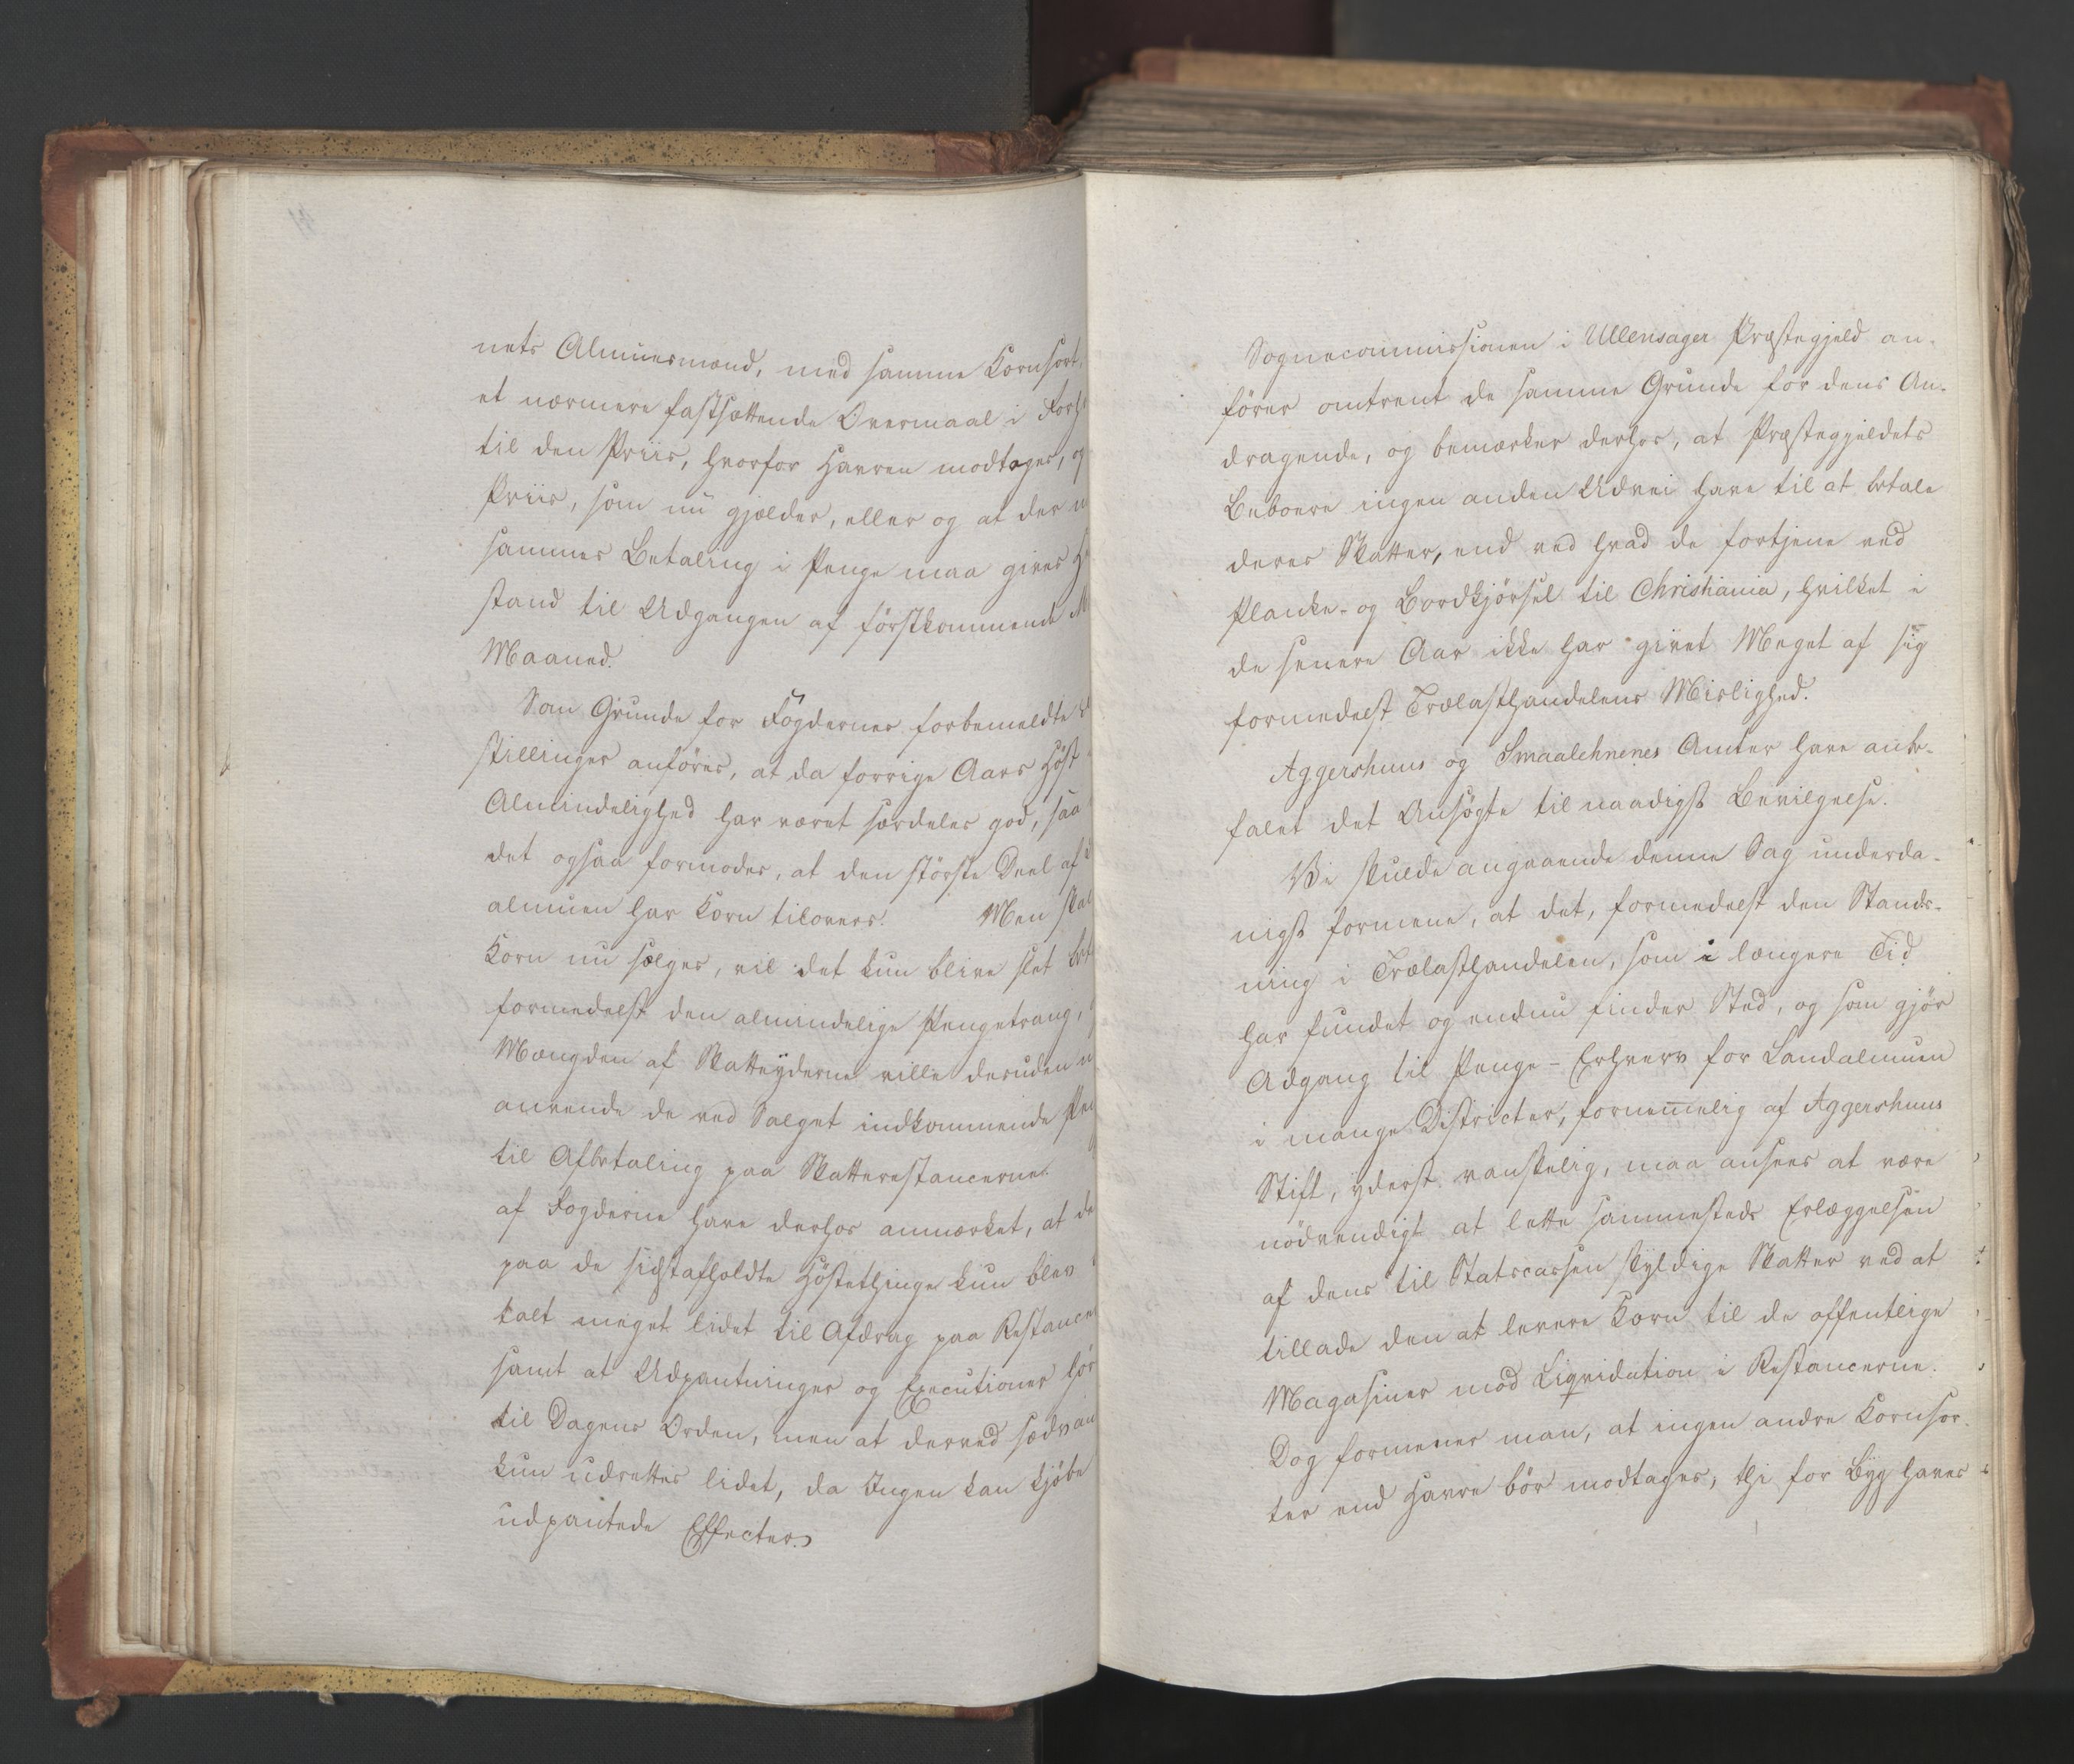 nets Almuesmænd, med samme Kornsort,
et nærmere fastsættende Overmaal i Forh
til den Priis, hvorfor Havren modtages, og
Priis, som nu gjælder, eller og at der
sammes Betaling i Penge maa gives
stand til Udgangen af förstkommende
Maaned.
Som Grunde for Fogdernes forbemeldte
stillinger anföres, at da forrige Aars Höst
Almindelighed har været særdeles god, saa
det ogsaa formodes, at den störste Deel af
almuen har Korn tilovers. Men skal
Korn nu sælges, vil det kun blive slet bet
formedelst den almindelige Pengetrang,
Mængden af Skatteyderne ville desuden
anvende de ved Salget indkommende Pen
til Afbetaling paa Skatterestancerne.
af Fogderne have derhos anmærket, at de
paa de sidstafholdte Höstethinge kun blev
talt meget lidet til Afdrag paa Restancer
samt at Udpantninger og Executioner hör
til Dagens Orden, men at derved sædvan
kun udrettes lidet, da Ingen kan kjöbe
udpantede Effecter.
Sognecommissionen i Ullensager Præstegjeld an-
förer omtrent de samme Grunde for dens An-
dragende, og bemærker derhos, at Præstegjeldets
Beboere ingen anden Udvei have til at betale
deres Skatter, end ved hvad de fortjene ved
Planke- og Bordkjörsel til Christiania, hvilket i
de senere Aar ikke har givet Meget af sig
formedelst Trælasthandelens Mislighed.
Aggershuus og Smaalehnenes Amter have anbe-
falet det Ansögte til naadigst Bevilgelse.
Vi skulde angaaende denne Sag underda-
nigst formene, at det, formedelst den Stands-
ning i Trælasthandelen, som i længere Tid
har fundet og endnu finder Sted, og som gjör
Adgang til Penge-Erhverv for Landalmuen
i mange Districter, fornemmelig af Aggershuus
Stift, yderst vanskelig, maa ansees at være
nödvendigt at lette sammesteds Erlæggelsen
af dens til Statscassen skyldige Skatter ved at
tillade den at levere Korn til de offentlige
Magasiner mod Liqvidation i Restancerne.
Dog formener man, at ingen andre Kornsor-
ter end Havre bör modtages; thi for Byg haves